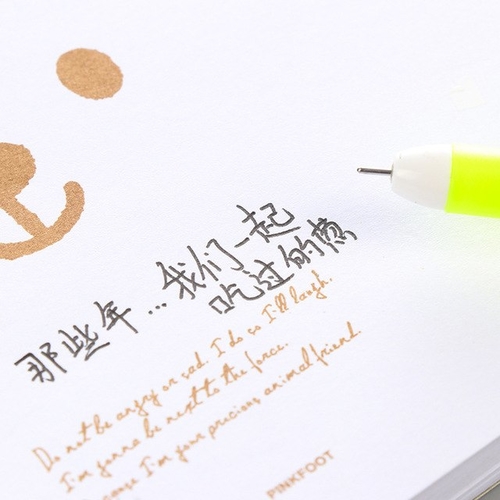 那些年...我们一起
吃过的
Do not be angry or sad. I do so I'll laugh.
I'm gonna be next to the force.
cause I'm your precious animal friend.
PINKFOOT